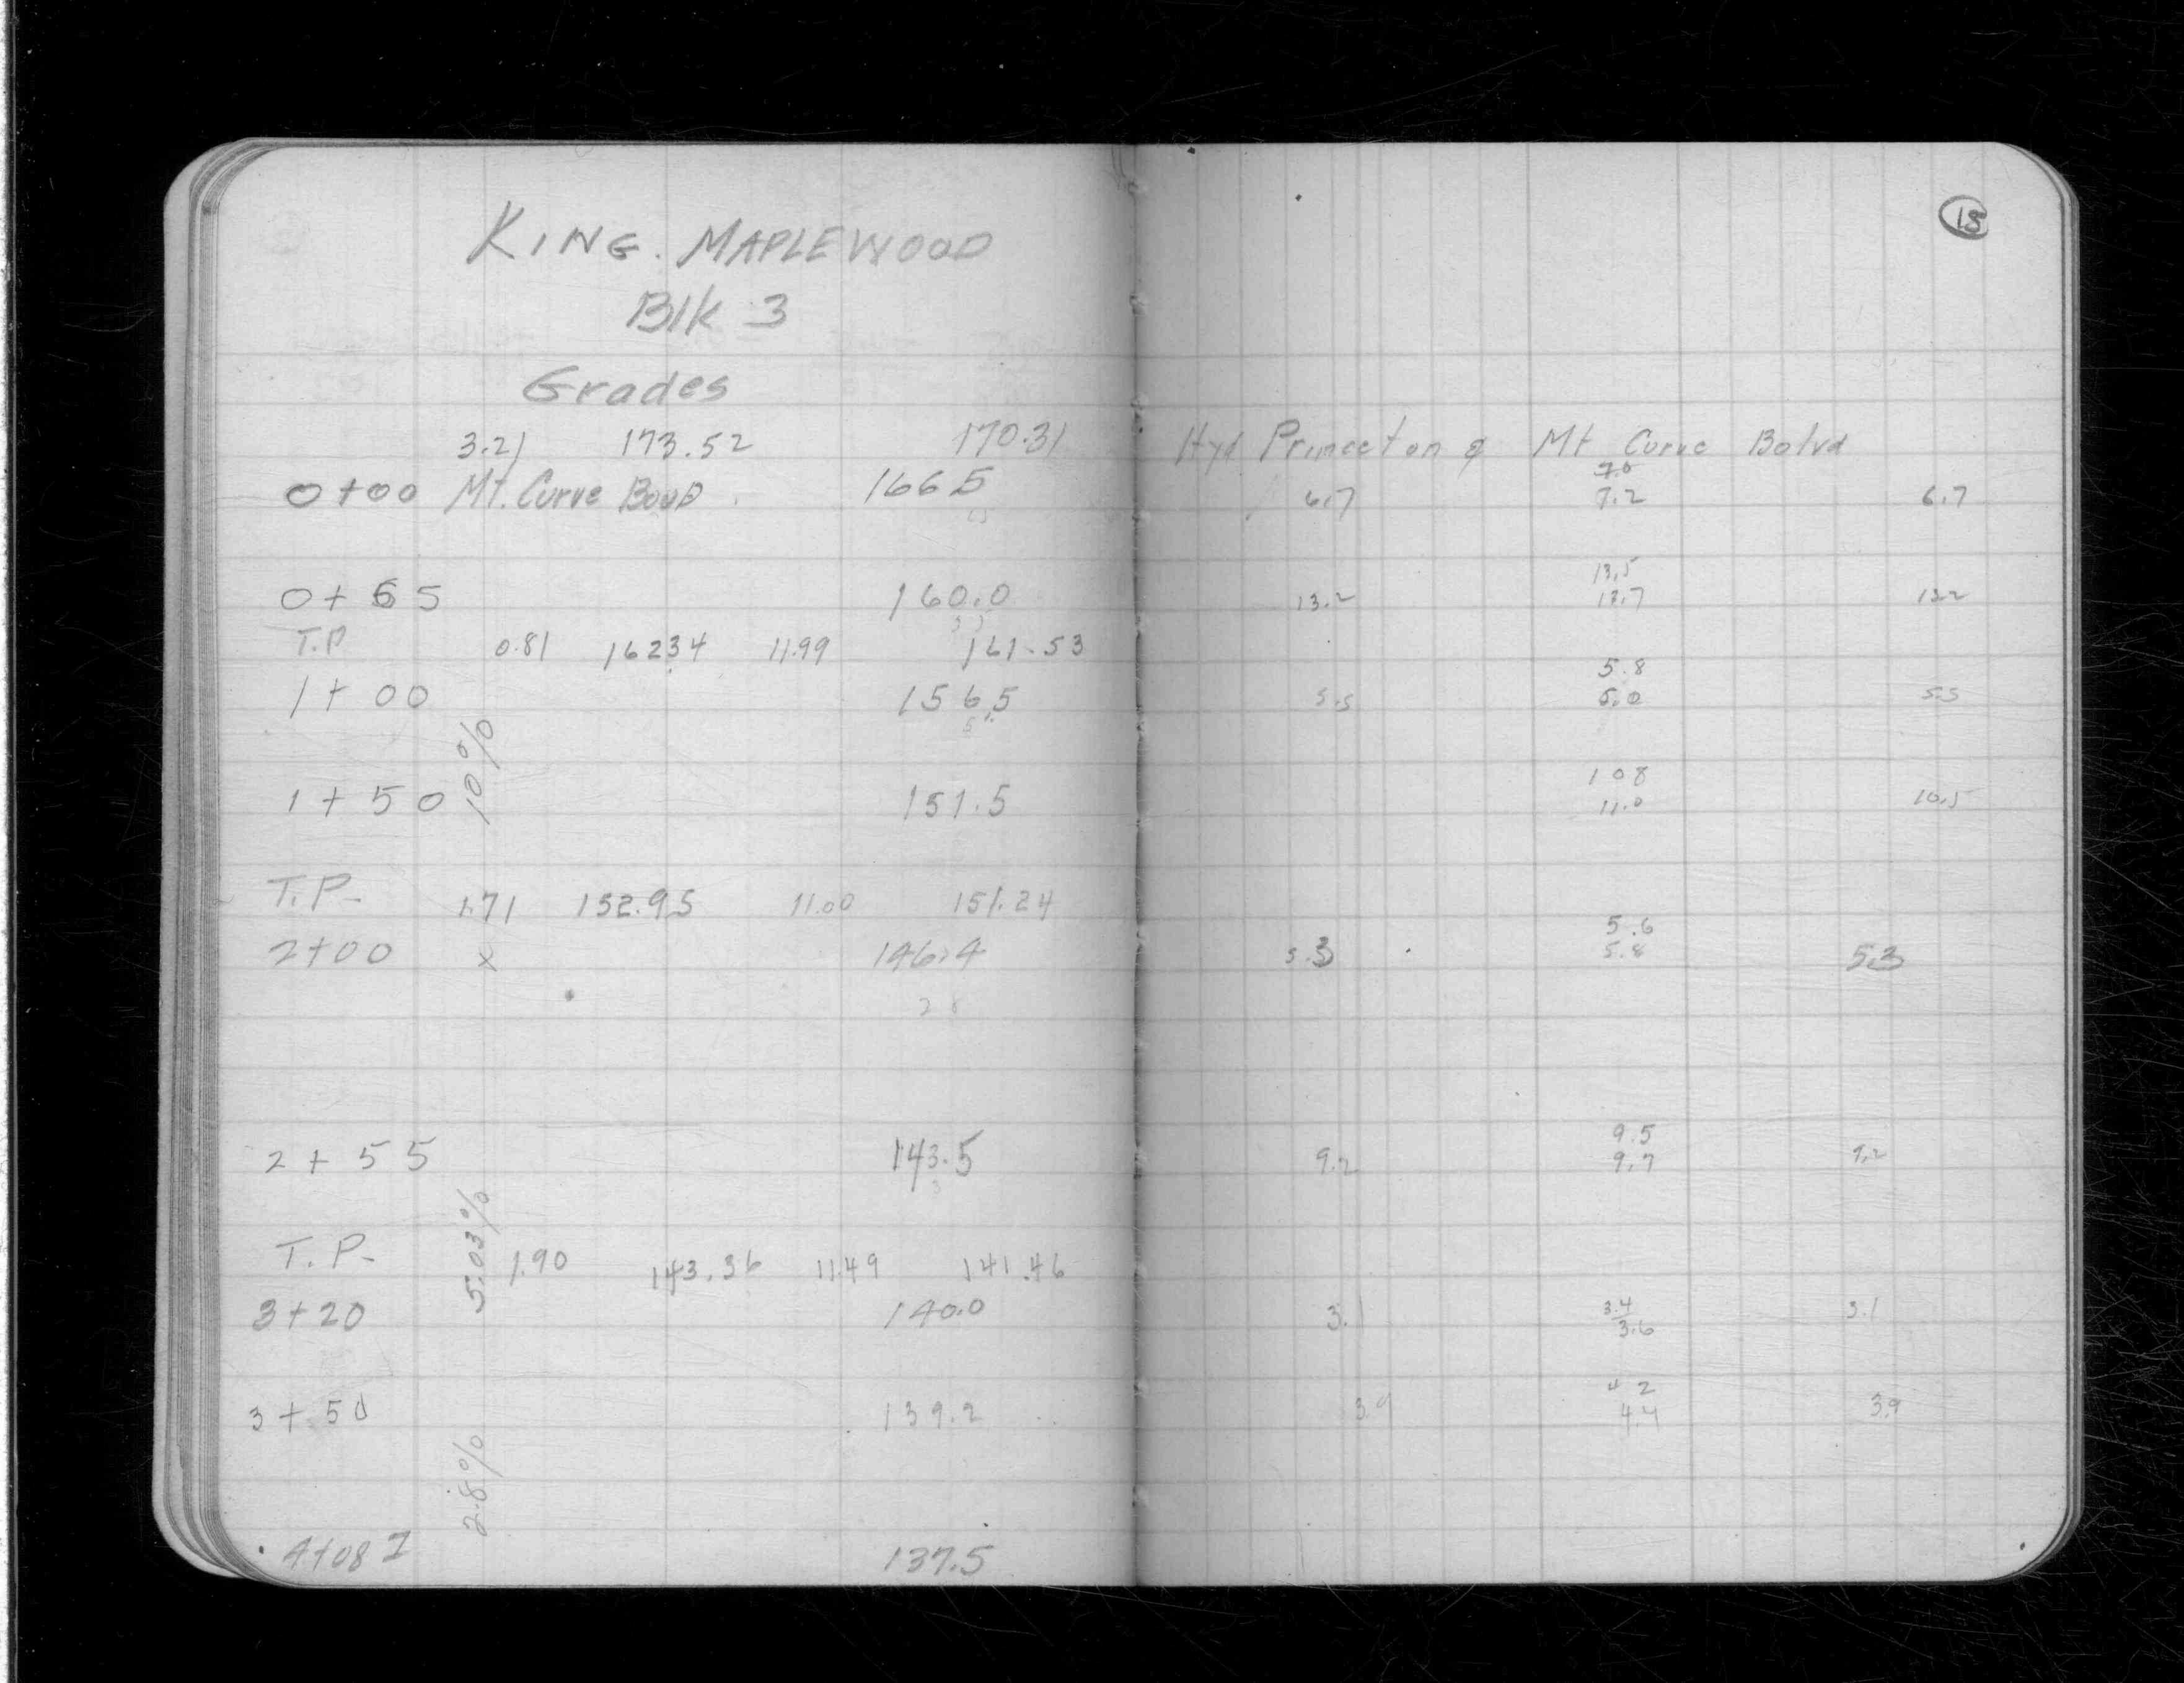 18
KING. MAPLEWOOD
Blk 3
Grades
3.21 173.52 170.31 Hyd Princeton & Mt Curve Bolvd
7.0
0+00 Mt. Curve 166.5 6.7 7.2 6.7
13.5
0+65 160.0 13.2 13.7 13.2
T.P 0.81 162.34 11.99 161.53
5.8
1+00 156.5 5.5 6.0 5.5
10%
10 8
1+50 151.5 11.0 10.5
T.P. 1.71 152.95 11.00 151.24
5.6
2+00 x 146.4 5.3 5.8 5.3
2 8
9.5
2+55 143.5 9.2 9.7 9.2
5.03%
T.P. 1.90 143.36 11.49 141.46
3+20 140.0 3.1 3.4 3.1
3.6
4 2
3+50 139.2 3.9 4.4 3.9
2.8%
4+08 137.5